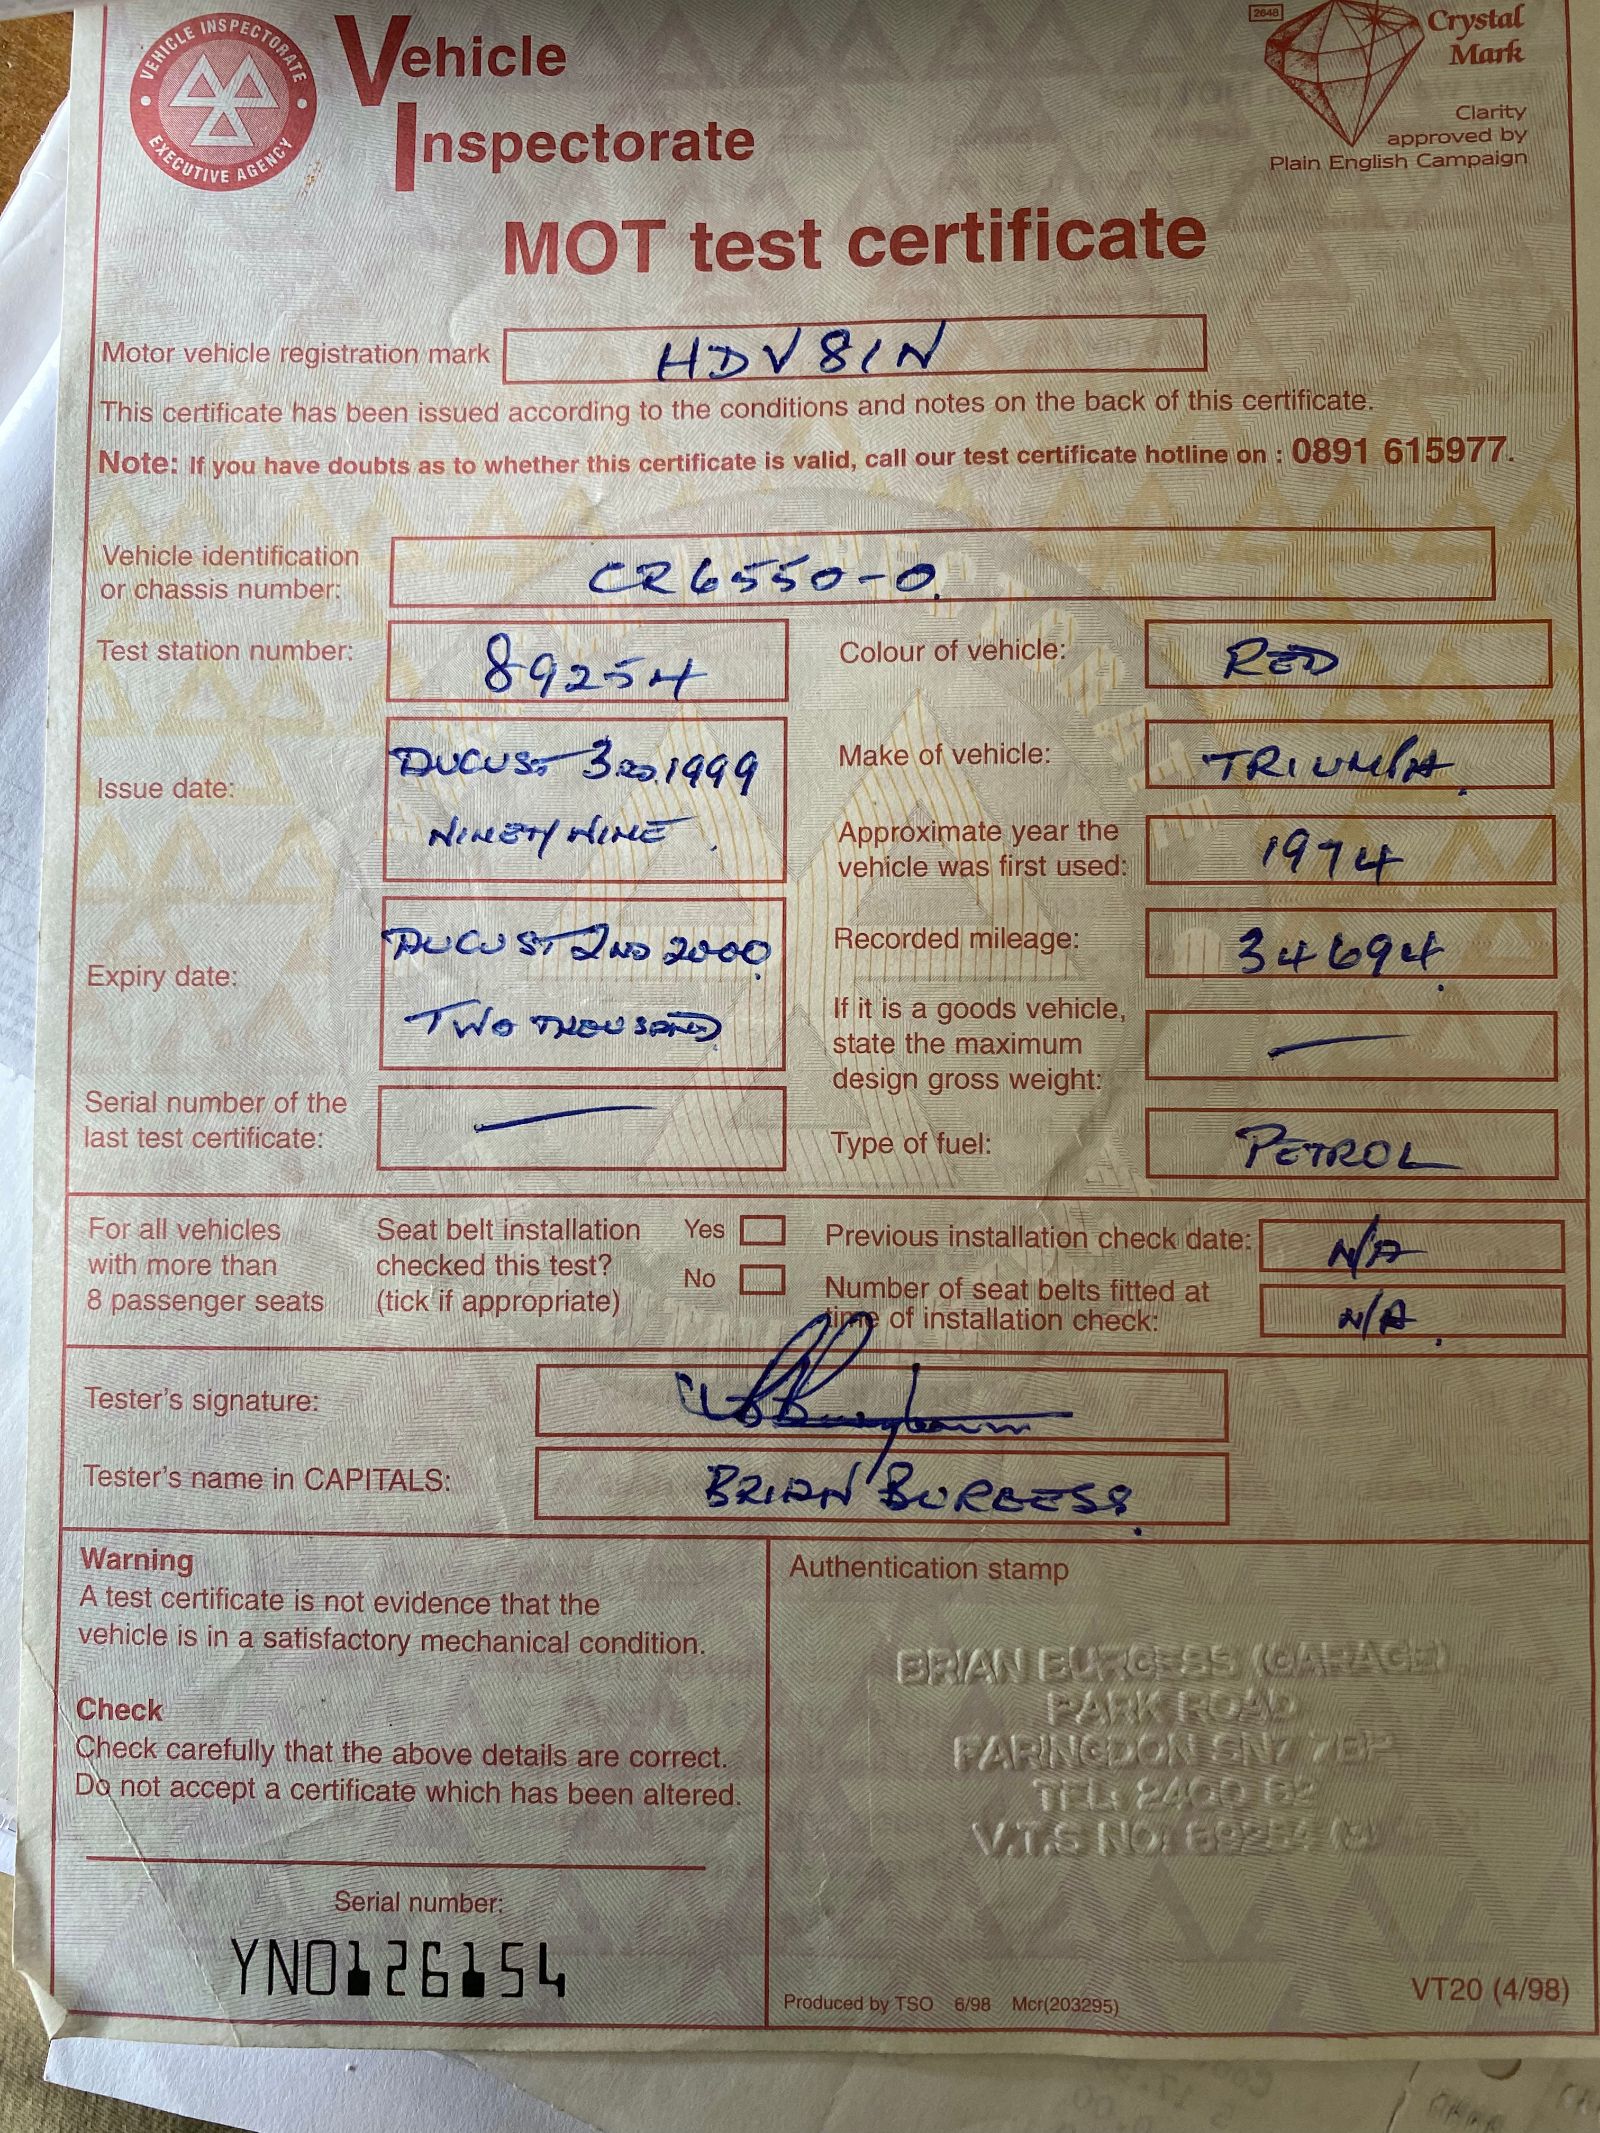 VEHICLE INSPECTORATE
EXECUTIVE AGENCY
Vehicle
Inspectorate
2648
Crystal
Mark
Clarity
approved by
Plain English Campaign
MOT test certificate
Motor vehicle registration mark HDV 81N
This certificate has been issued according to the conditions and notes on the back of this certificate.
Note: If you have doubts as to whether this certificate is valid, call our test certificate hotline on : 0891 615977.
Vehicle identification
or chassis number: CR6550-0.
Test station number: 89254
Colour of vehicle: RED
Issue date: AUGUST 3RD. 1999
NINETY NINE.
Make of vehicle: TRIUMPH.
Approximate year the
vehicle was first used: 1974
Expiry date: AUGUST 2ND 2000.
TWO THOUSAND.
Recorded mileage: 34694.
If it is a goods vehicle,
state the maximum
design gross weight: —
Serial number of the
last test certificate: —
Type of fuel: PETROL
For all vehicles
with more than
8 passenger seats
Seat belt installation
checked this test?
(tick if appropriate)
Yes
No
Previous installation check date: N/A
Number of seat belts fitted at
time of installation check: N/A.
Tester's signature:
Tester's name in CAPITALS: BRIAN BURGESS.
Warning
A test certificate is not evidence that the
vehicle is in a satisfactory mechanical condition.
Check
Check carefully that the above details are correct.
Do not accept a certificate which has been altered.
Serial number:
YN0126154
Authentication stamp
BRIAN BURGESS (GARAGE)
PARK ROAD
FARINGDON SN7 7BP
TEL: 2400 82
V.T.S NO: 89254
Produced by TSO 6/98 Mcr(203295)
VT20 (4/98)